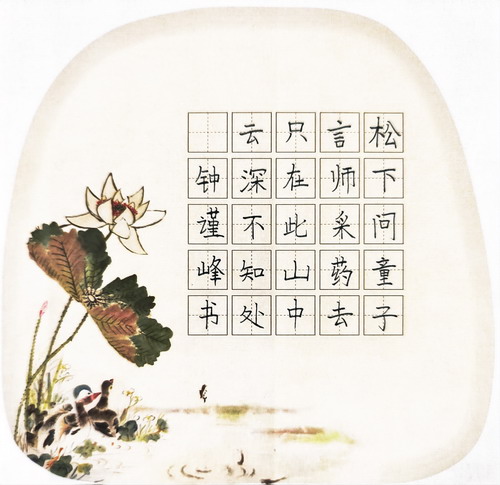 松下问童子
言师采药去
只在此山中
云深不知处
钟谨峰书